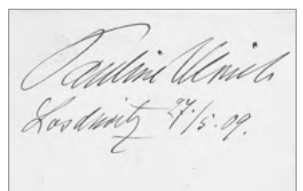 Pauline Ulrich
Loschwitz 27./5. 09.